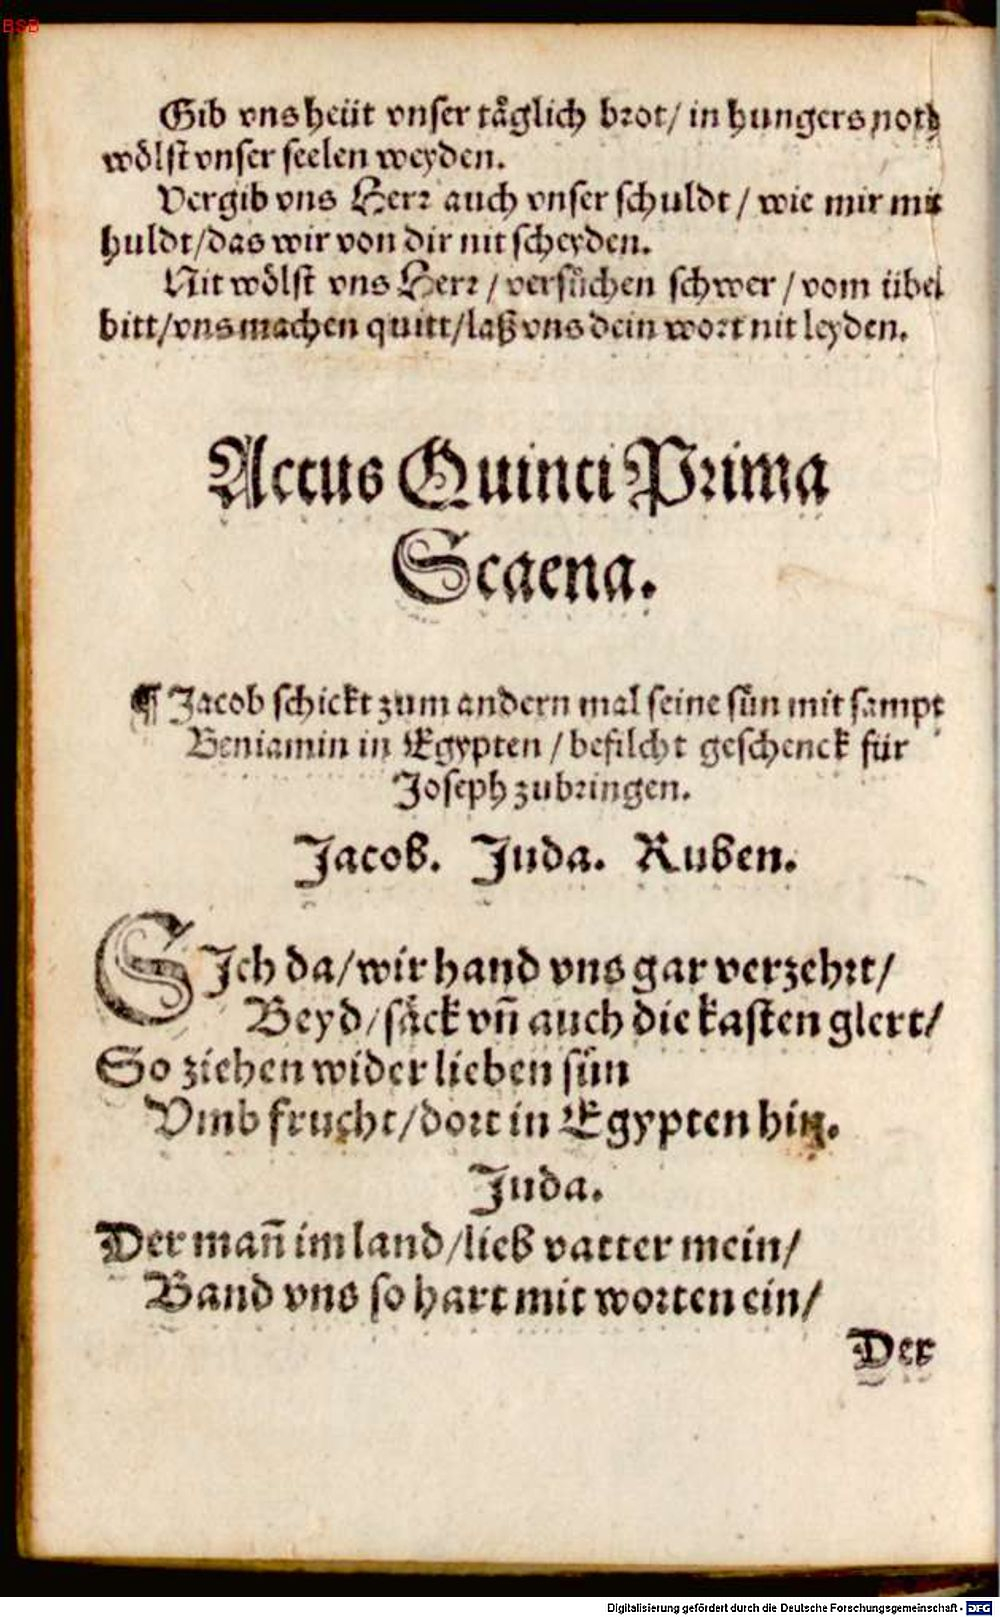 BSB
Gib vns heüt vnser tåglich brot / in hungers noth
wölst vnser seelen weyden.
Vergib vns Herr auch vnser schuldt / wie mir mit
huldt / das wir von dir nit scheyden.
Nit wölst vns Herr / versůchen schwer / vom übel
bitt / vns machen quitt / laß vns dein wort nit leyden.
Actus Quinti Prima
Scaena.
¶ Jacob schickt zum andern mal seine sün mit sampt
Beniamin in Egypten / befilcht geschenck für
Joseph zubringen.
Jacob. Juda. Ruben.
SIch da / wir hand vns gar verzehrt /
Beyd / säck vñ auch die kasten glert /
So ziehen wider lieben sün
Vmb frucht / dort in Egypten hin.
Juda.
Der mañ im land / lieb vatter mein /
Band vns so hart mit worten ein /
Der
Digitalisierung gefördert durch die Deutsche Forschungsgemeinschaft - DFG